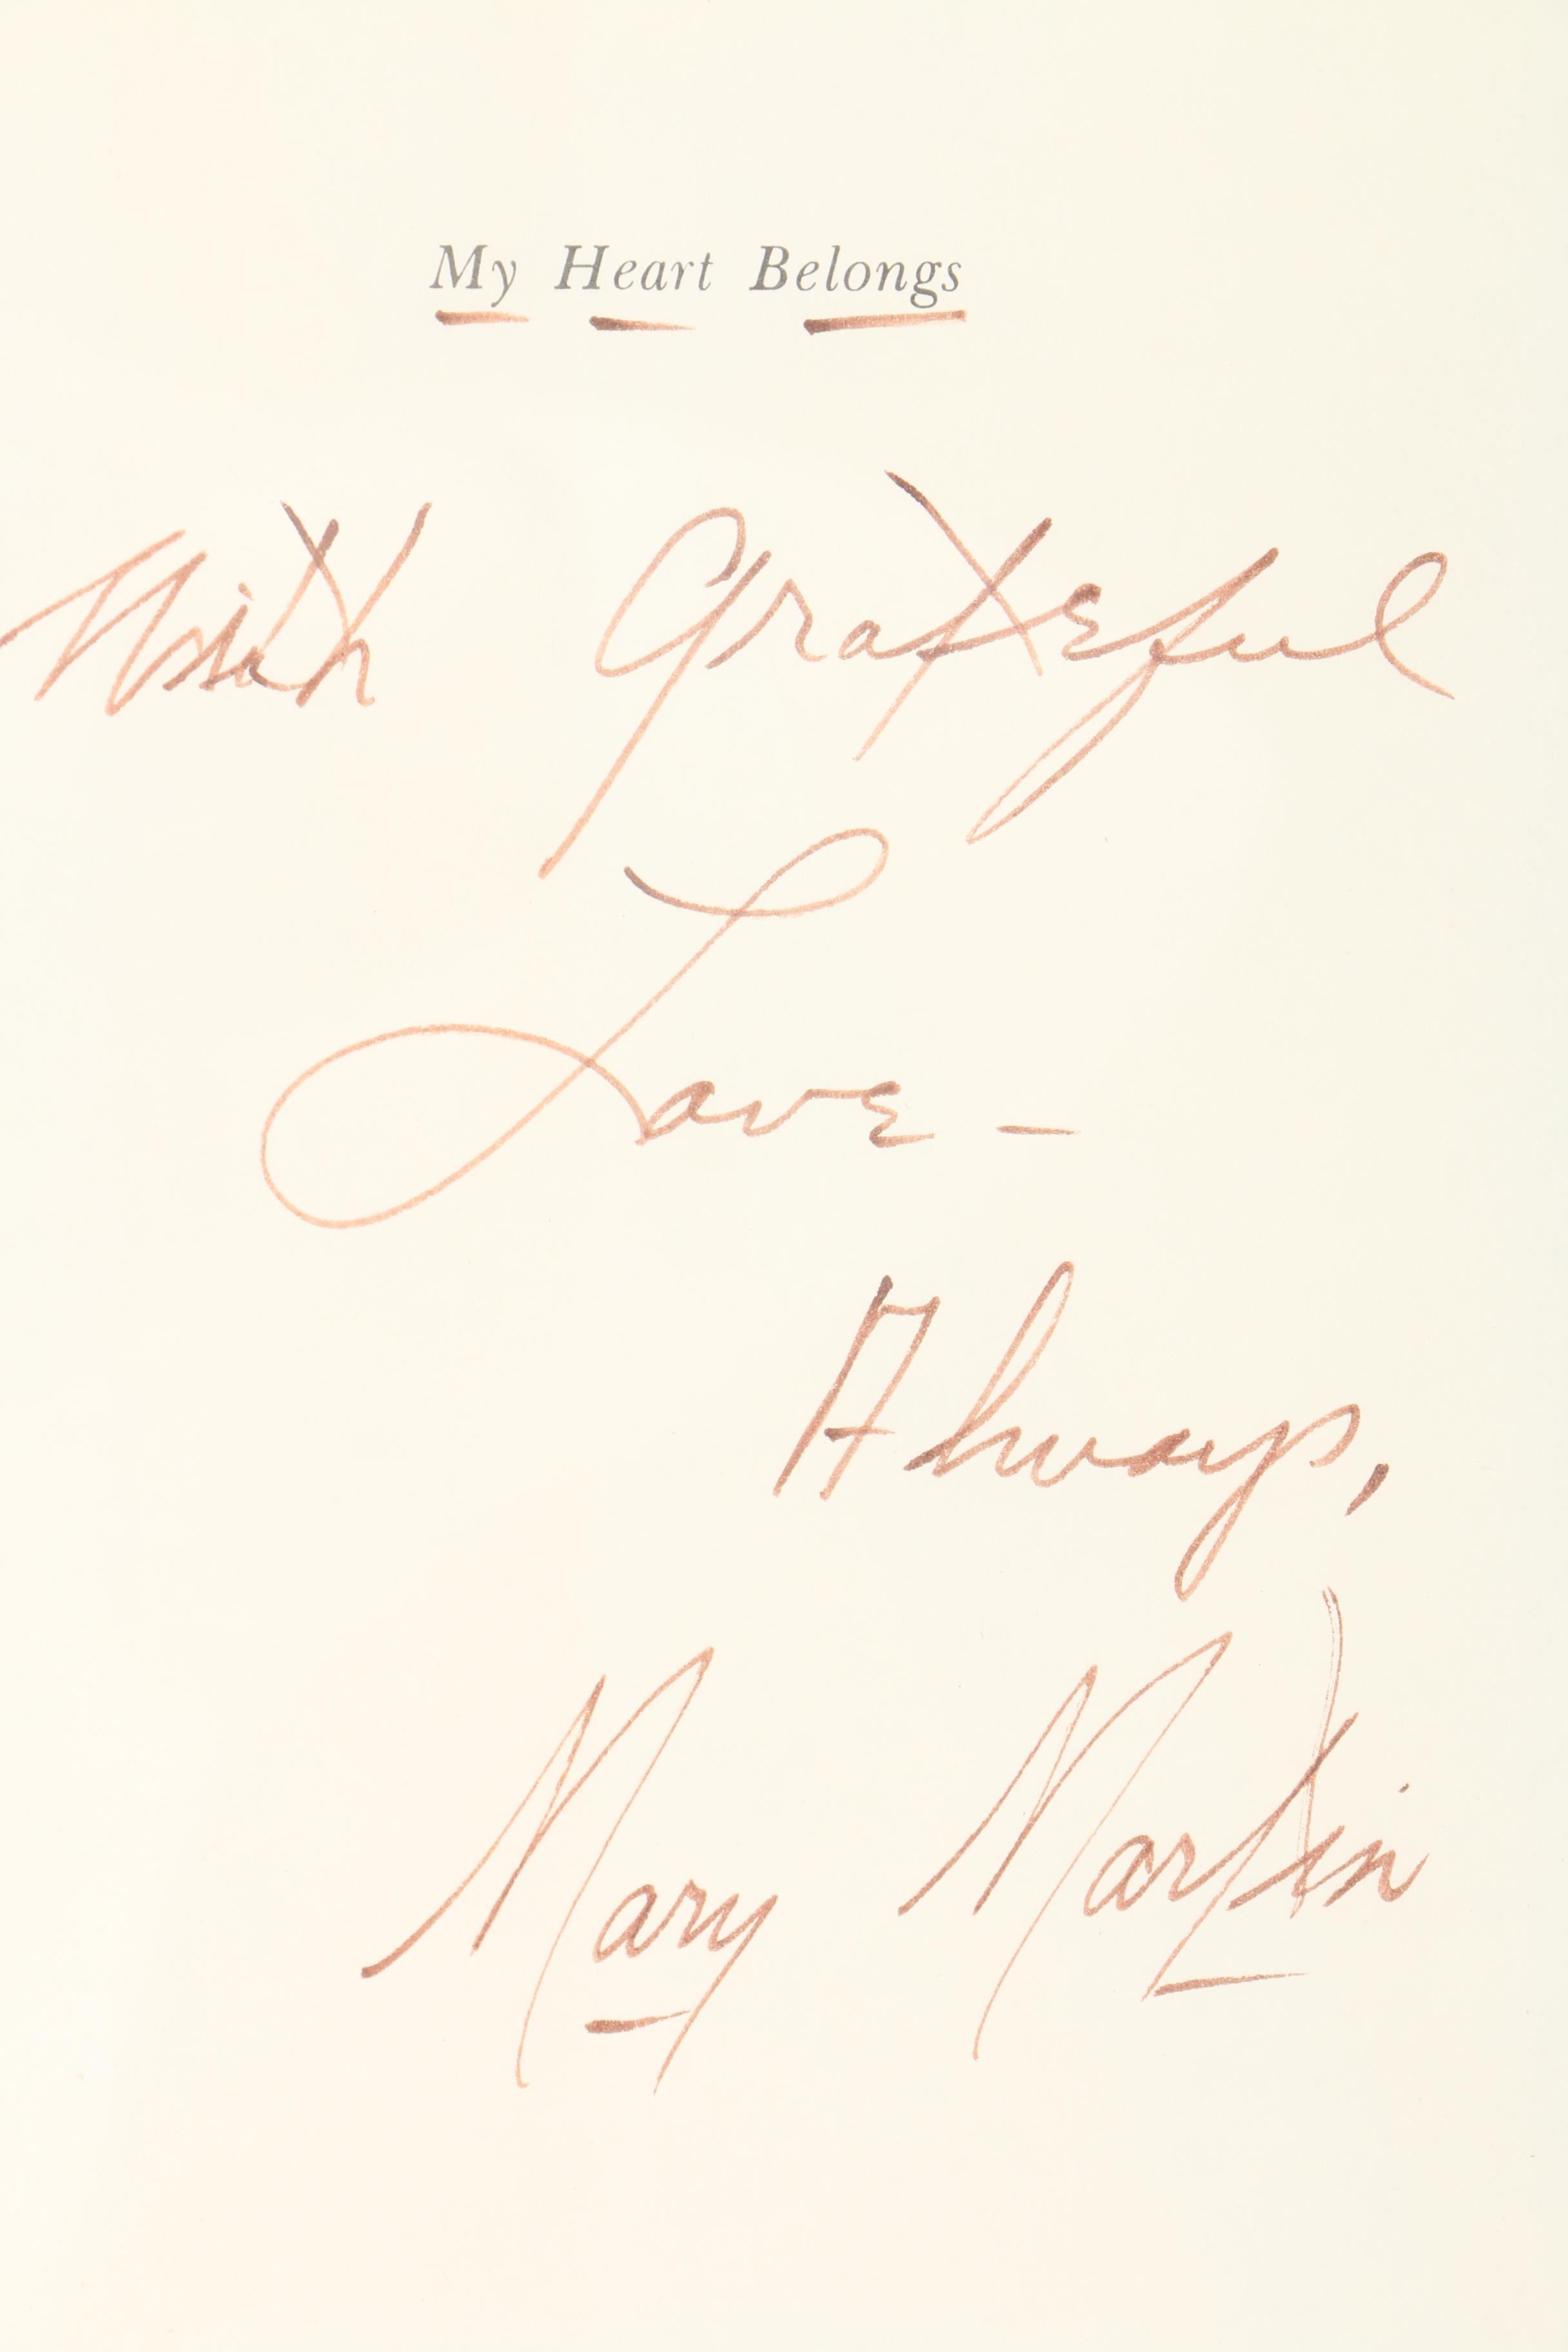 My Heart Belongs
With Grateful
Love –
Always,
Mary Martin